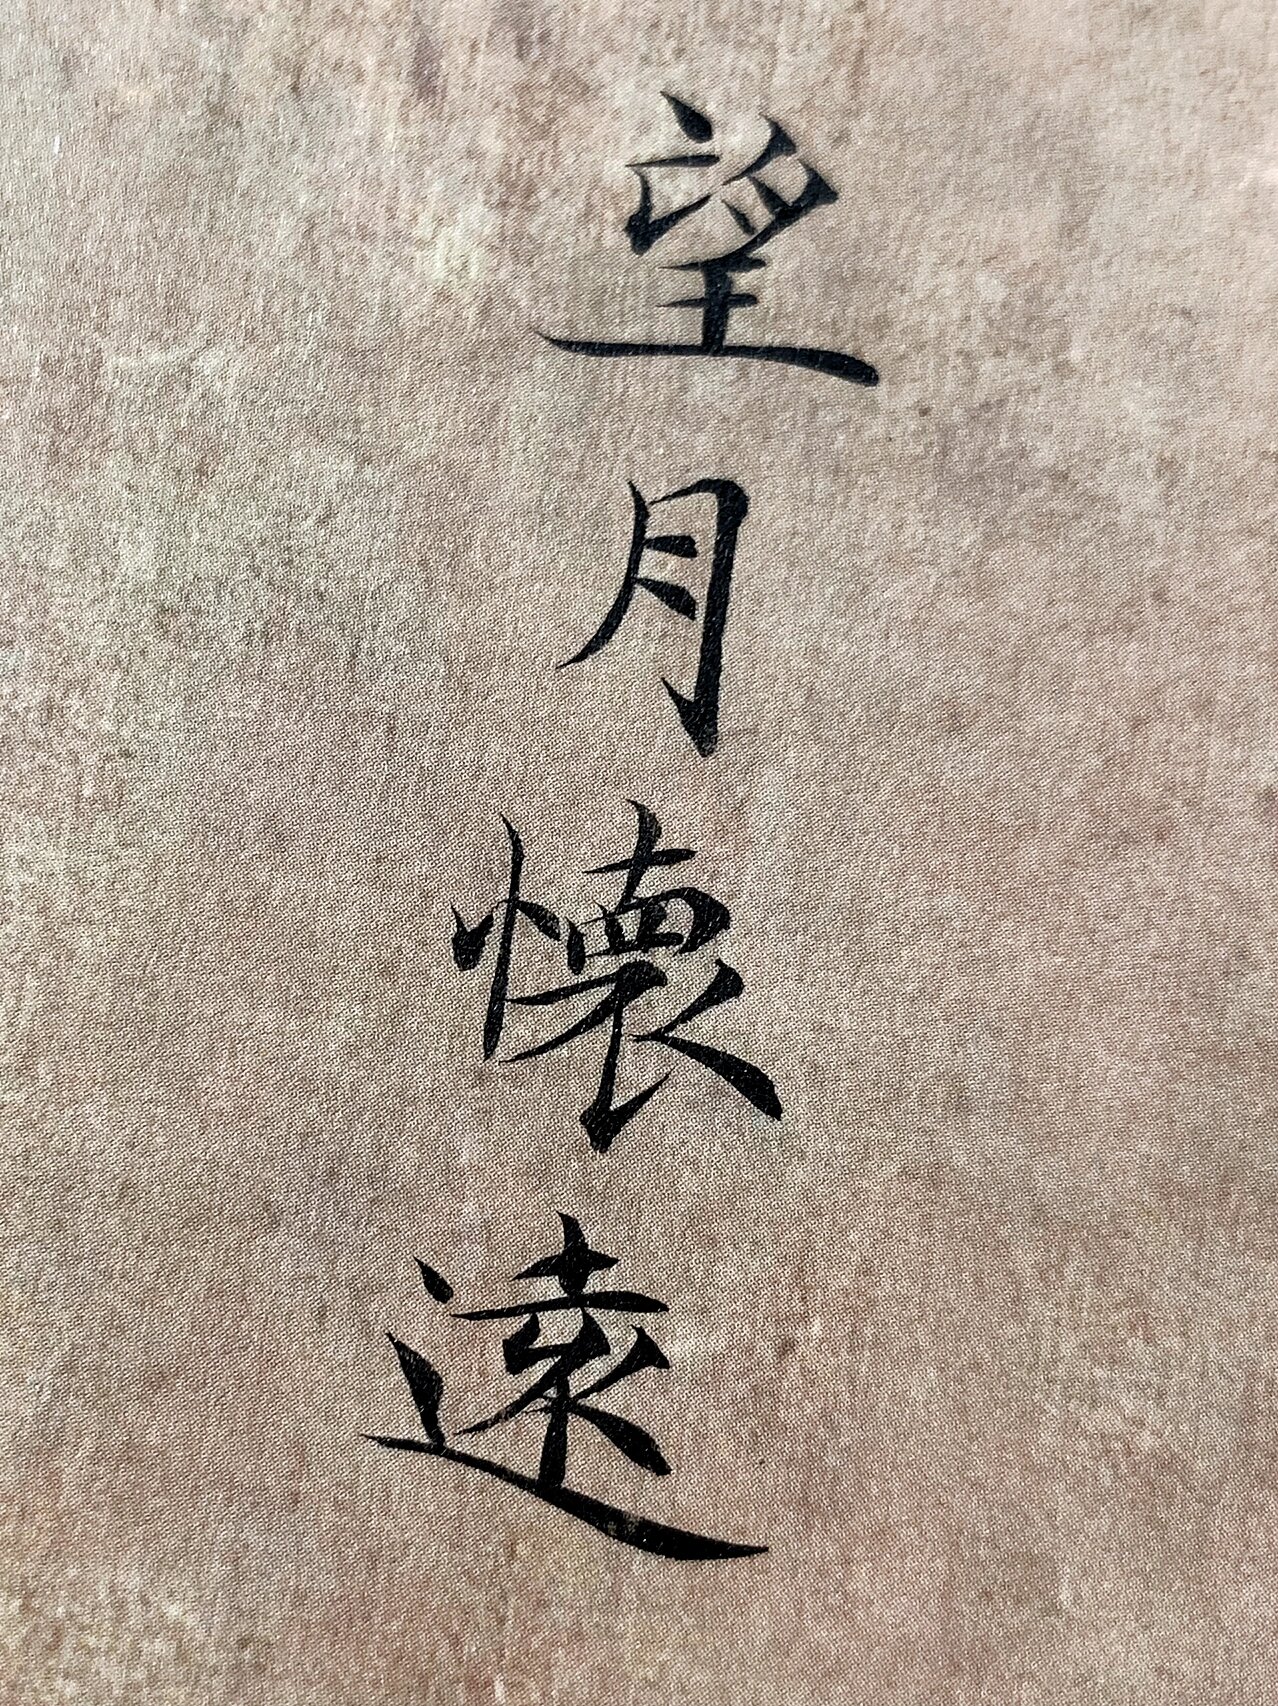 望月懷遠